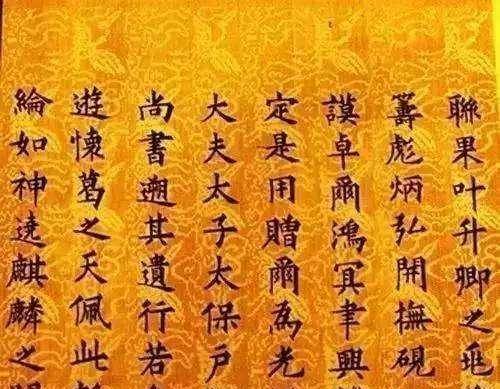 聯果叶升卿之
籌彪炳弘開撫硯
謨卓爾鴻冥聿興
定是用贈爾為光
大夫太子太保戶
尚書遡其遺行若
遊懷葛之天佩此
綸如神遶麒麟之